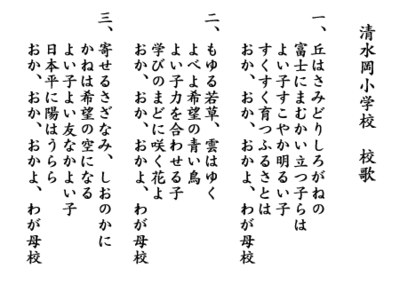 清水岡小学校　校歌
一、丘はさみどりしろがねの
富士にまむかい立つ子らは
よい子すこやか明るい子
すくすく育つふるさとは
おか、おか、おかよ、わが母校
二、もゆる若草、雲はゆく
よべよ希望の青い鳥
よい子力を合わせる子
学びのまどに咲く花よ
おか、おか、おかよ、わが母校
三、寄せるさざなみ、しおのかに
かねは希望の空になる
よい子よい友なかよい子
日本平に陽はうらら
おか、おか、おかよ、わが母校